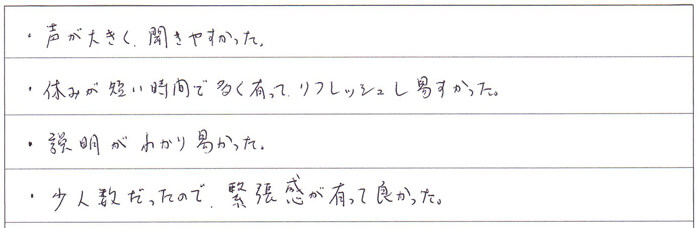 ・声が大きく、聞きやすかった。
・休みが短い時間で多く有って、リフレッシュし易すかった。
・説明がわかり易かった。
・少人数だったので、緊張感が有って良かった。